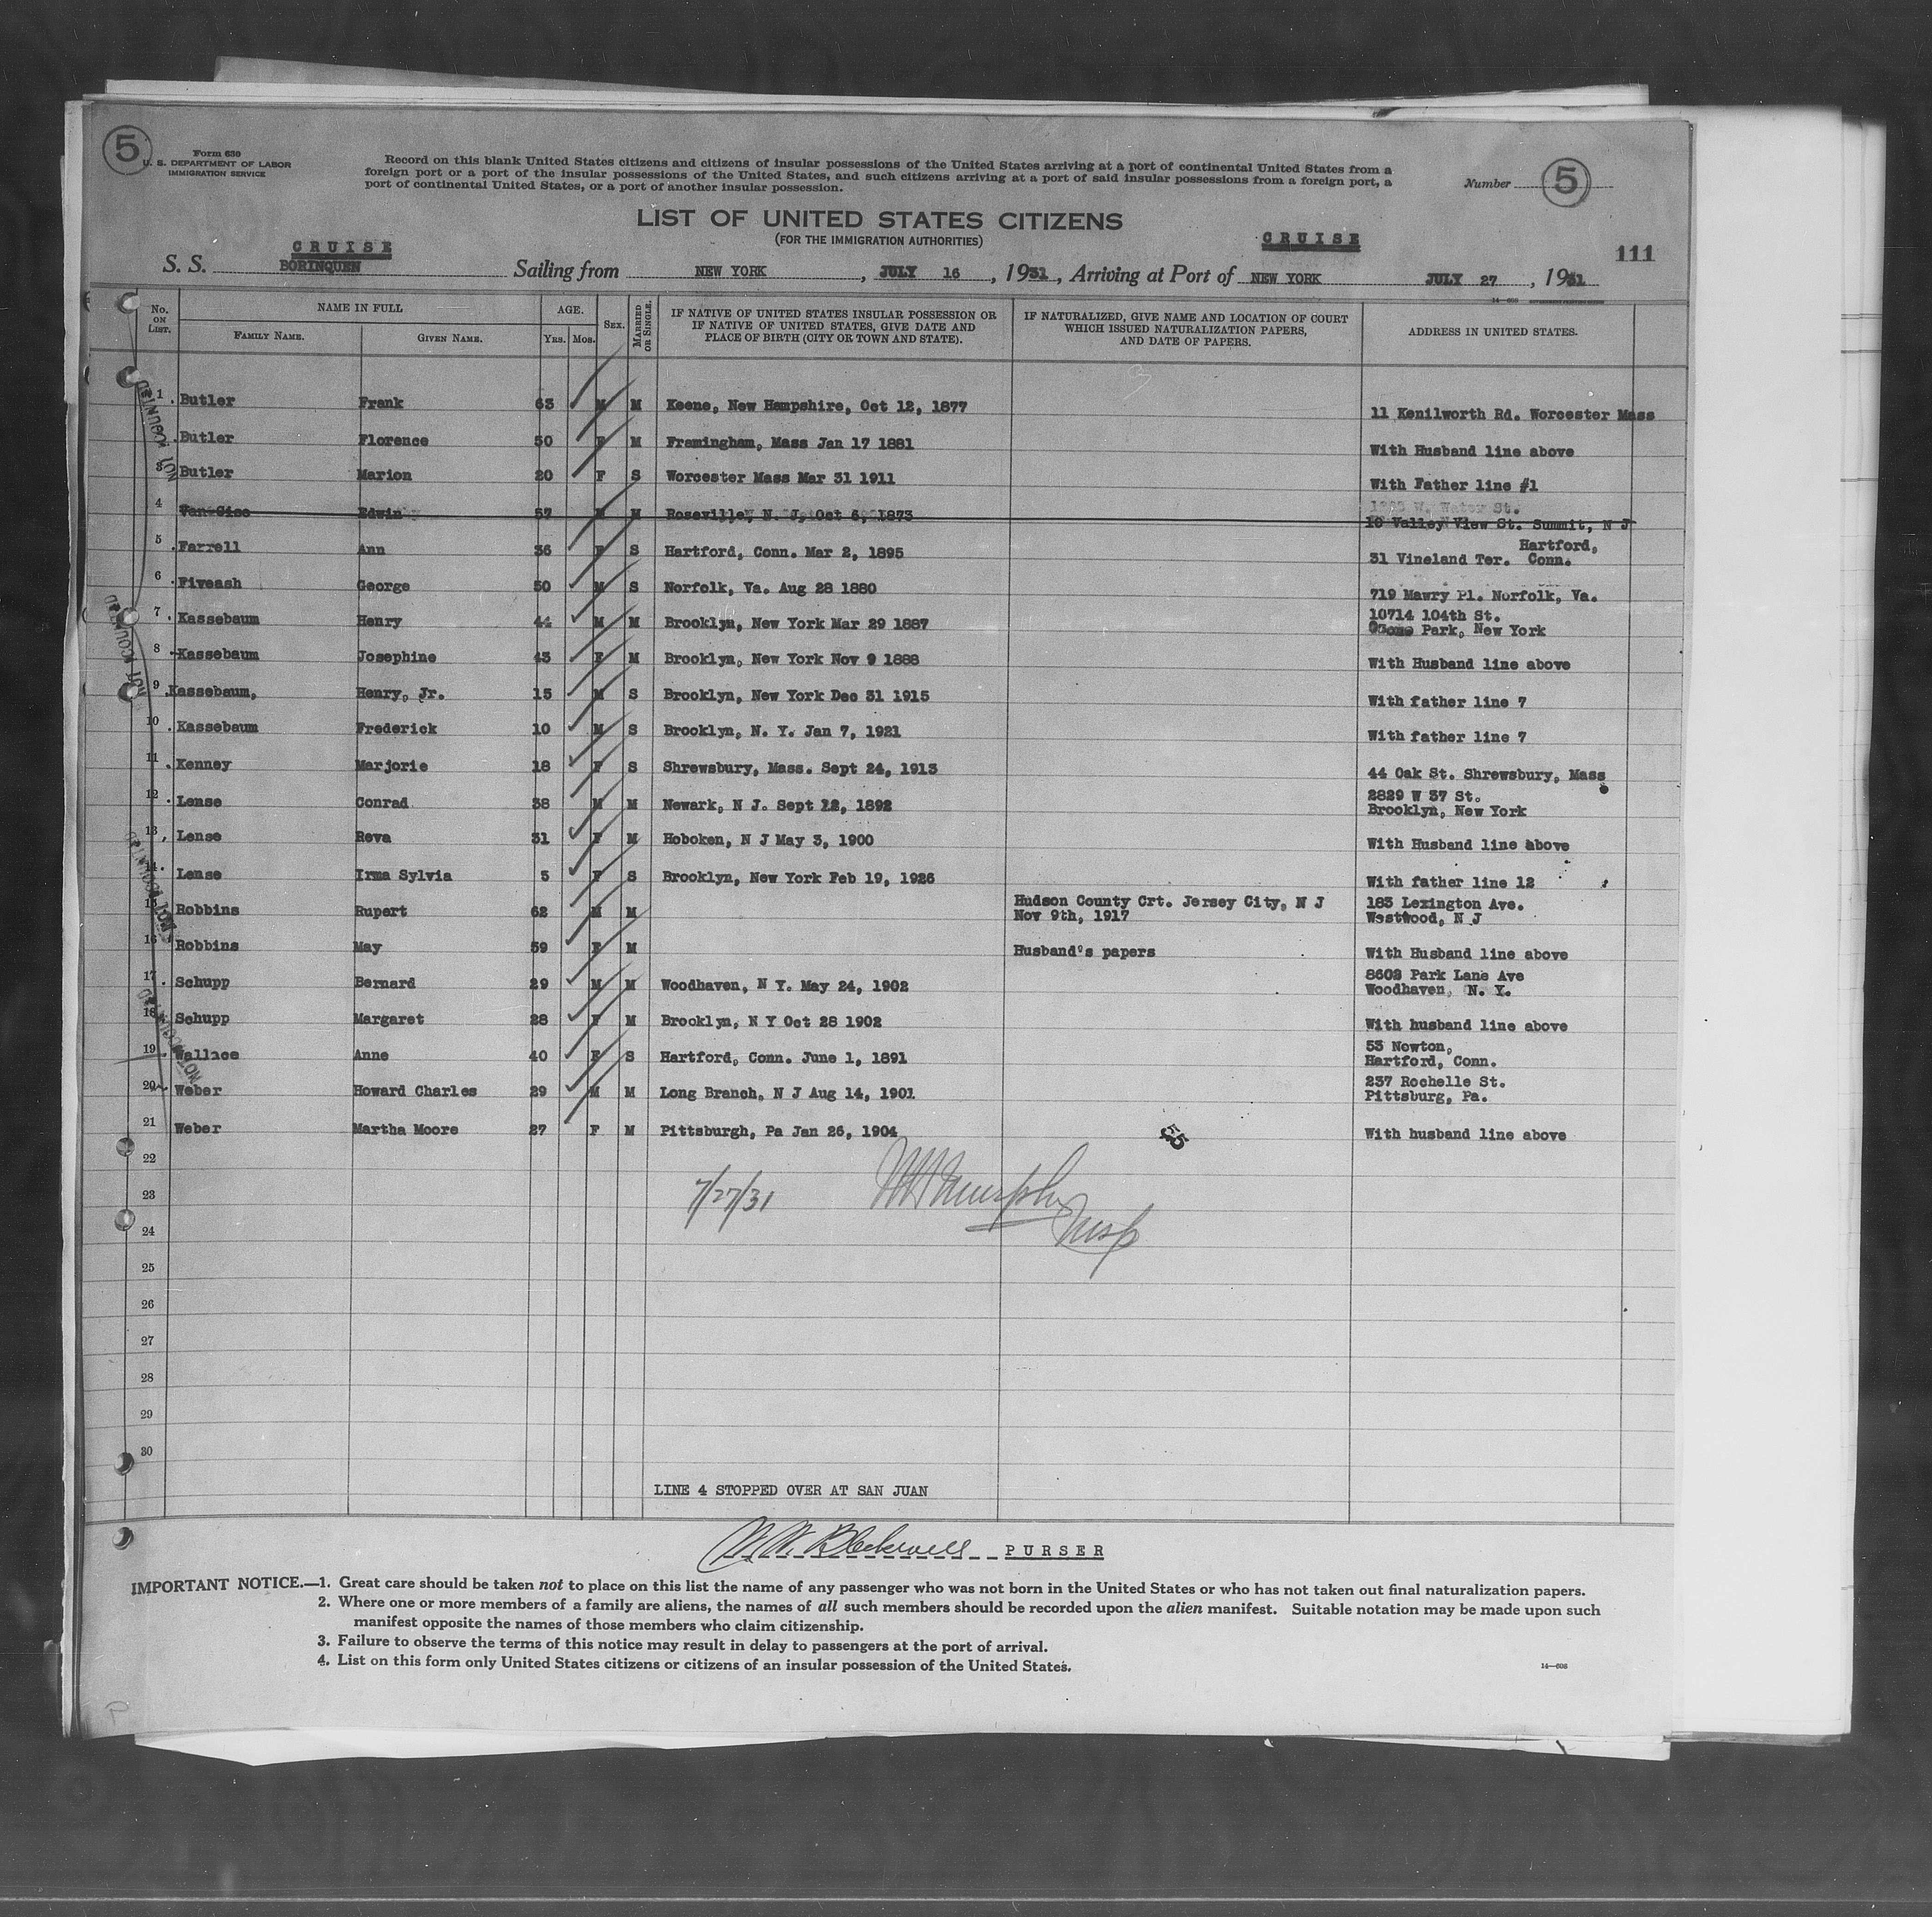 5
Form 630
U. S. DEPARTMENT OF LABOR
IMMIGRATION SERVICE
Record on this blank United States citizens and citizens of insular possessions of the United States arriving at a port of continental United States from a
foreign port or a port of the insular possessions of the United States, and such citizens arriving at a port of said insular possessions from a foreign port, a
port of continental United States, or a port of another insular possession.
Number 5
LIST OF UNITED STATES CITIZENS
(FOR THE IMMIGRATION AUTHORITIES)
CRUISE CRUISE
111
S. S. BORINQUEN Sailing from NEW YORK, JULY 16, 1931, Arriving at Port of NEW YORK JULY 27, 1931
14-608
No. ON LIST. NAME IN FULL FAMILY NAME. GIVEN NAME. AGE. YRS. MOS. SEX. MARRIED OR SINGLE. IF NATIVE OF UNITED STATES INSULAR POSSESSION OR IF NATIVE OF UNITED STATES, GIVE DATE AND PLACE OF BIRTH (CITY OR TOWN AND STATE). IF NATURALIZED, GIVE NAME AND LOCATION OF COURT WHICH ISSUED NATURALIZATION PAPERS, AND DATE OF PAPERS. ADDRESS IN UNITED STATES.
1 Butler Frank 63 M M Keene, New Hampshire, Oct 12, 1877 11 Kenilworth Rd. Worcester Mass
Butler Florence 50 F M Framingham, Mass Jan 17 1881 With Husband line above
3 Butler Marion 20 F S Worcester Mass Mar 31 1911 With Father line #1
4 Van Cise Edwin 57 M M Roseville, N. J, Oct 6, 1873 10 Valley View St. Summit, N J
5 Farrell Ann 36 F S Hartford, Conn. Mar 2, 1895 31 Vineland Ter. Hartford, Conn.
6 Fiveash George 50 M S Norfolk, Va. Aug 28 1880 719 Mawry Pl. Norfolk, Va.
7 Kassebaum Henry 44 M M Brooklyn, New York Mar 29 1887 10714 104th St. Ozone Park, New York
8 Kassebaum Josephine 43 F M Brooklyn, New York Nov 9 1888 With Husband line above
9 Kassebaum, Henry, Jr. 15 M S Brooklyn, New York Dec 31 1915 With father line 7
10 Kassebaum Frederick 10 M S Brooklyn, N. Y. Jan 7, 1921 With father line 7
11 Kenney Marjorie 18 F S Shrewsbury, Mass. Sept 24, 1913 44 Oak St. Shrewsbury, Mass
12 Lense Conrad 38 M M Newark, N J. Sept 12, 1892 2829 W 37 St. Brooklyn, New York
13 Lense Reva 31 F M Hoboken, N J May 3, 1900 With Husband line above
14 Lense Irma Sylvia 5 F S Brooklyn, New York Feb 19, 1926 With father line 12
15 Robbins Rupert 62 M M Hudson County Crt. Jersey City, N J Nov 9th, 1917 183 Lexington Ave. Westwood, N J
16 Robbins May 59 F M Husband's papers With Husband line above
17 Schupp Bernard 29 M M Woodhaven, N Y. May 24, 1902 8602 Park Lane Ave Woodhaven, N. Y.
18 Schupp Margaret 28 F M Brooklyn, N Y Oct 28 1902 With husband line above
19 Wallace Anne 40 F S Hartford, Conn. June 1, 1891 53 Newton, Hartford, Conn.
20 Weber Howard Charles 29 M M Long Branch, N J Aug 14, 1901 237 Rochelle St. Pittsburg, Pa.
21 Weber Martha Moore 27 F M Pittsburgh, Pa Jan 26, 1904 With husband line above
55
22
7/27/31 Murphy
23
Insp
24
25
26
27
28
29
30
LINE 4 STOPPED OVER AT SAN JUAN
Blackwell PURSER
IMPORTANT NOTICE.—1. Great care should be taken not to place on this list the name of any passenger who was not born in the United States or who has not taken out final naturalization papers.
2. Where one or more members of a family are aliens, the names of all such members should be recorded upon the alien manifest. Suitable notation may be made upon such
manifest opposite the names of those members who claim citizenship.
3. Failure to observe the terms of this notice may result in delay to passengers at the port of arrival.
4. List on this form only United States citizens or citizens of an insular possession of the United States.
14—608